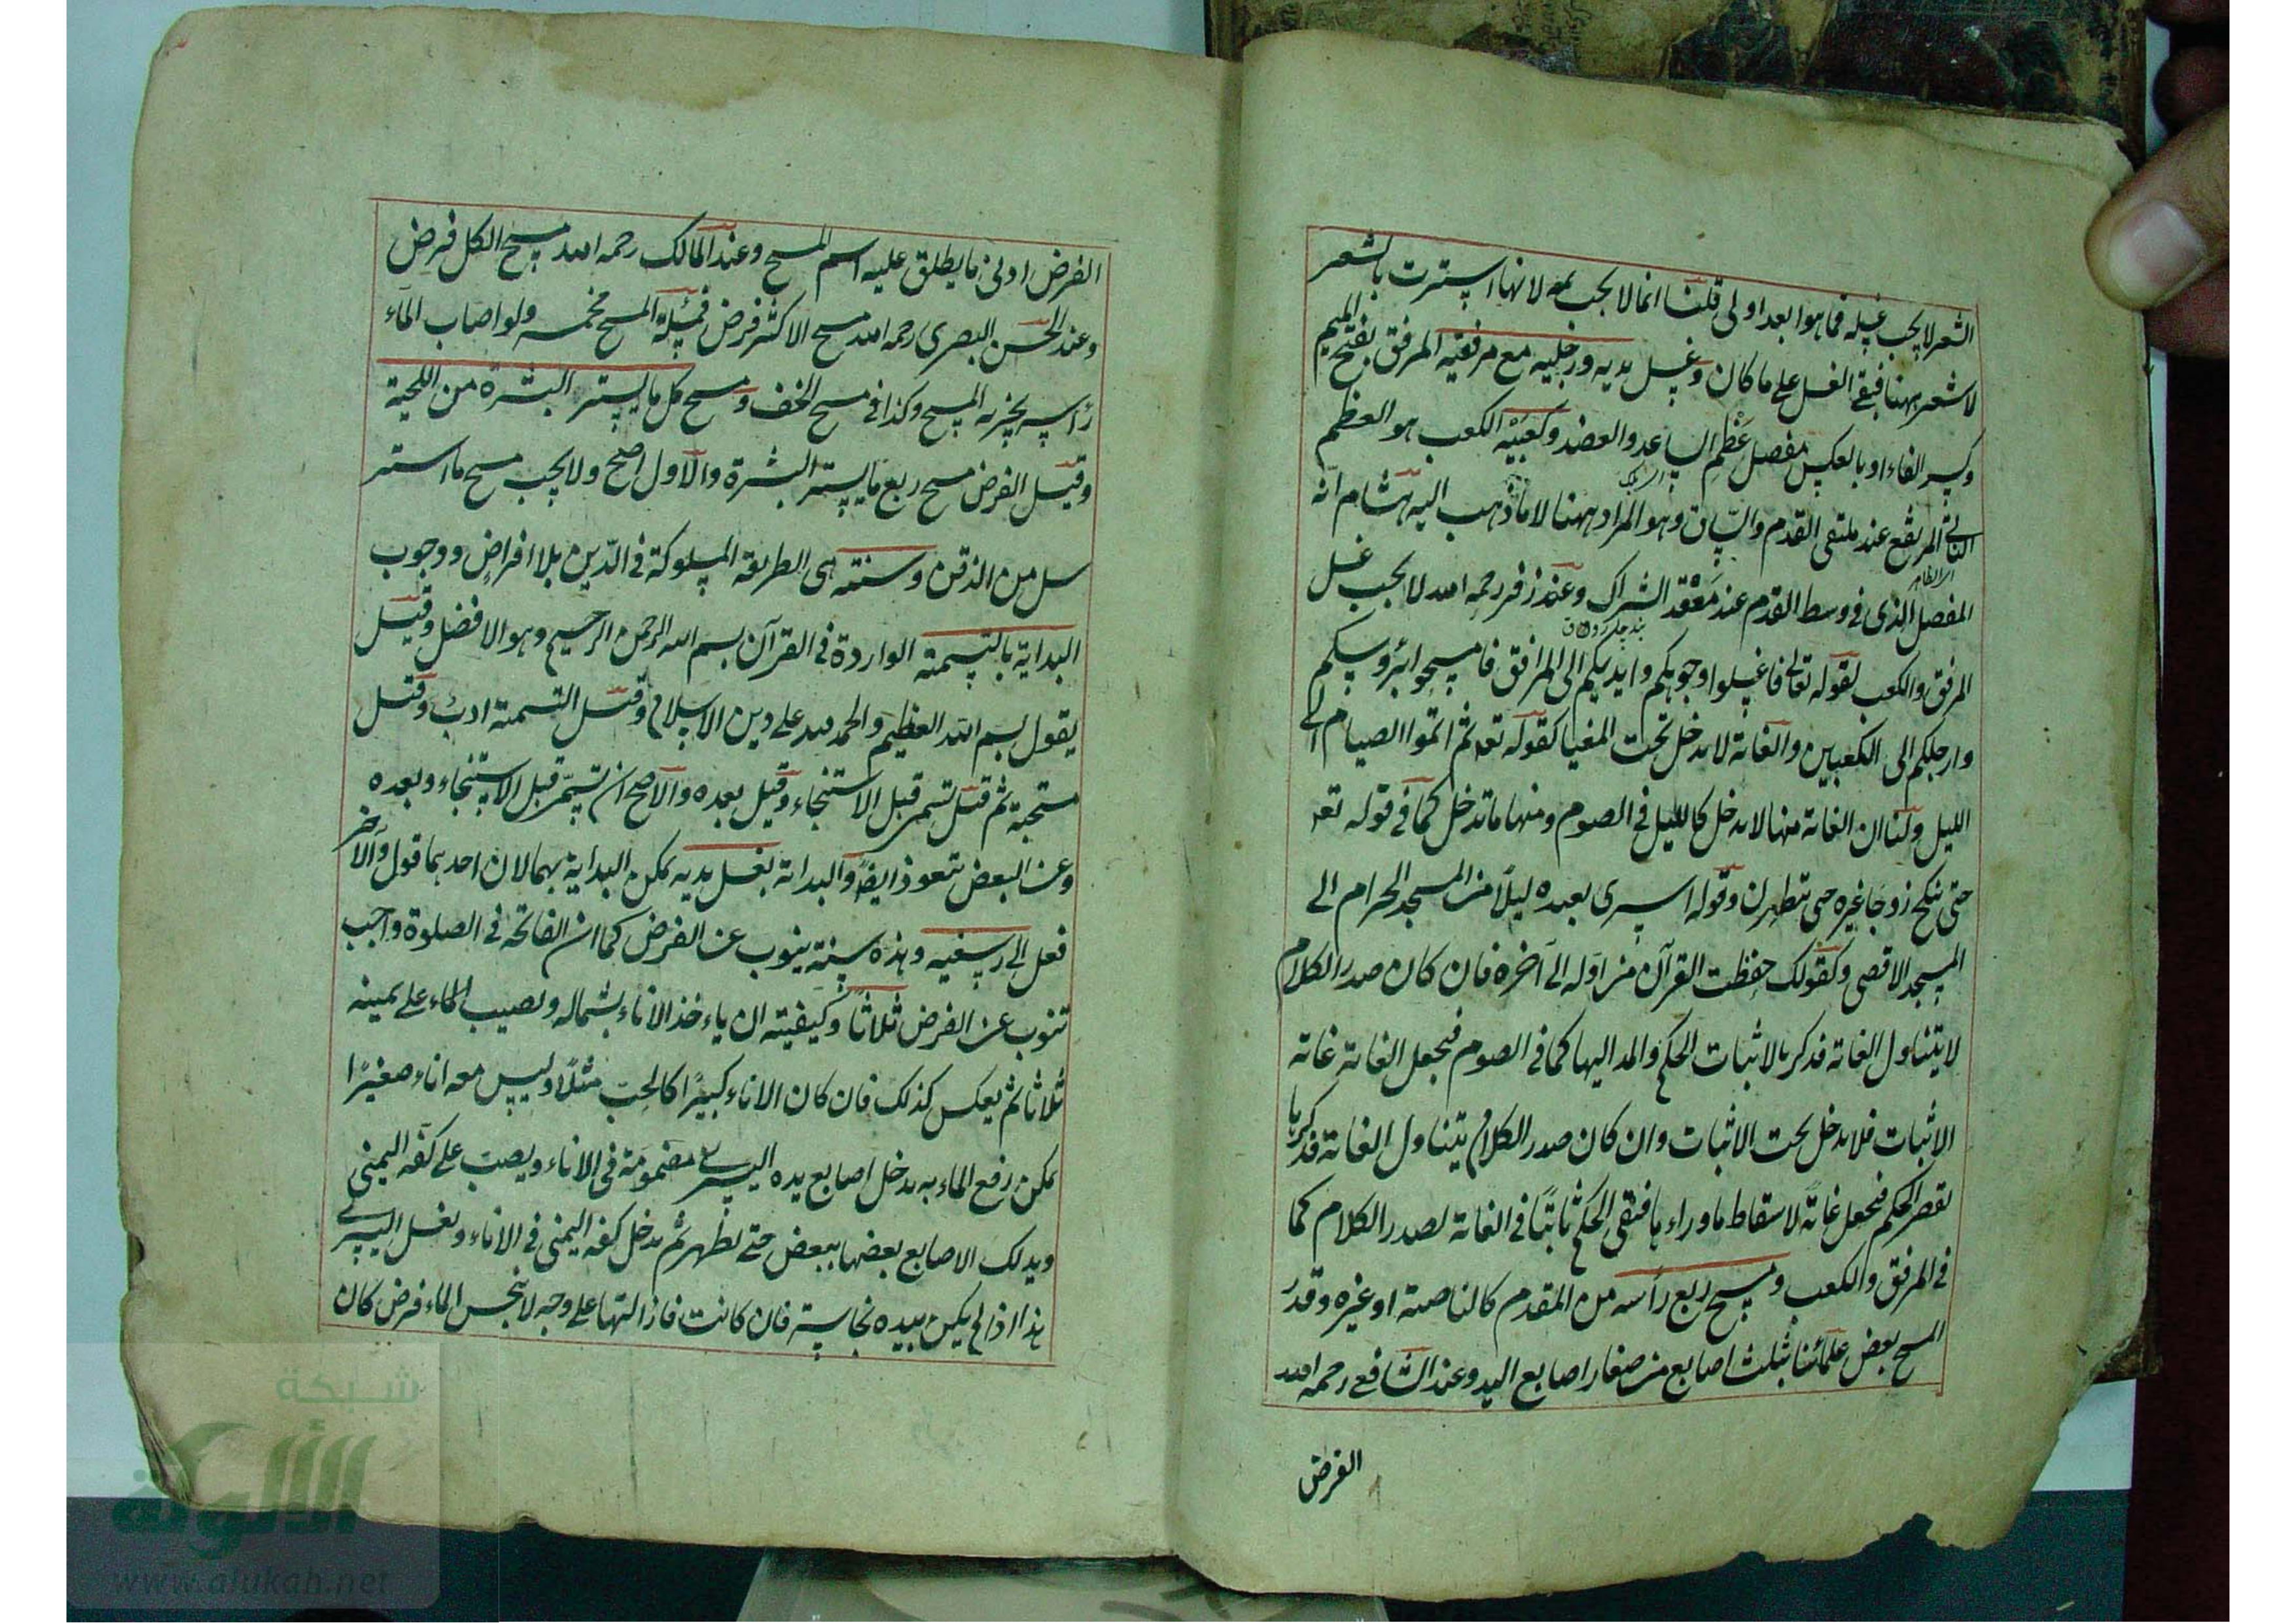 الشعر لا يجب غسله فما هو ابعد اولى قلنا انما لا يجب ثمه لانها استترت بالشعر
لا شعر ههنا فبقي الغسل على ما كان وغسل يديه ورجليه مع مرفقيه المرفق بفتح الميم
وكسر الفاء او بالعكس مفصل عظم الساعد والعضد وكعبيه الكعب هو العظم
الناتي المرتفع عند ملتقى القدم والساق وهو المراد ههنا لا ما ذهب اليه هشام انه
المفصل الذي في وسط القدم عند معقد الشراك وعند زفر رحمه الله لا يجب غسل
المرفق والكعب لقوله تعالى فاغسلوا وجوهكم وايديكم الى المرافق فامسحوا برؤسكم
وارجلكم الى الكعبين والغاية لا تدخل تحت المغيا كقوله تعه ثم اتموا الصيام الى
الليل ولنا ان الغاية منها لا تدخل كالليل في الصوم ومنها ما تدخل كما في قوله تعه
حتى تنكح زوجا غيره حتى تطهرن وقوله اسرى بعبده ليلا من المسجد الحرام الى
المسجد الاقصى وكقولك حفظت القرآن من اوله الى آخره فان كان صدر الكلام
لا يتناول الغاية فذكرها لاثبات الحكم والمد اليها كما في الصوم فيجعل الغاية غاية
الاثبات فلا تدخل تحت الاثبات وان كان صدر الكلام يتناول الغاية فذكرها
لقصر الحكم فيجعل غاية لاسقاط ما وراءها فبقي الحكم ثابتا في الغاية لصدر الكلام كما
في المرفق والكعب ومسح ربع رأسه من المقدم كالناصية او غيره وقدر
المسح بعض علمائنا بثلث اصابع من صغار اصابع اليد وعند الشافعي رحمه الله
الفرض
الفرض ادنى ما يطلق عليه اسم المسح وعند المالك رحمه الله مسح الكل فرض
وعند الحسن البصري رحمه الله مسح الاكثر فرض فمسئلة المسح مخمسه ولو اصاب الماء
رأسه يجزيه المسح وكذا في مسح الخف ومسح كل ما يستر البشرة من اللحية
وقيل الفرض مسح ربع ما يستر البشرة والاول اصح ولا يجب مسح ما استر
سل من الذقن وسنته هي الطريقة المسلوكة في الدين بلا افراض ووجوب
البداية بالتسمية الواردة في القرآن بسم الله الرحمن الرحيم وهو الافضل وقيل
يقول بسم الله العظيم والحمد لله على دين الاسلام وقيل التسمية ادب وقيل
مستحبة ثم قيل تسمى قبل الاستنجاء وقيل بعده والاصح ان تسمى قبل الاستنجاء وبعده
وعن البعض يتعوذ ايضا والبداية بغسل يديه يمكن البداية بهما لان احدهما قول والآخر
فعل الى رسغيه وهذه سنة ينوب عن الفرض كما ان الفاتحة في الصلوة واجب
تنوب عن الفرض ثلاثا وكيفيته ان ياءخذ الاناء بشماله ويصيب الماء على يمينه
ثلاثا ثم يعكس كذلك فان كان الاناء كبيرا كالحب مثلا وليس معه اناء صغيرا
يمكن رفع الماء به يدخل اصابع يده اليسرى مضمومة في الاناء ويصب على كفه اليمنى
ويدلك الاصابع بعضها ببعض حتى تطهر ثم يدخل كفه اليمنى في الاناء ويغسل اليسرى
هذا اذا لم يكن بيده نجاسة فان كانت فازالتها على وجه لا ينجس الماء فرض كان
شبكة
الألوكة
www.alukah.net